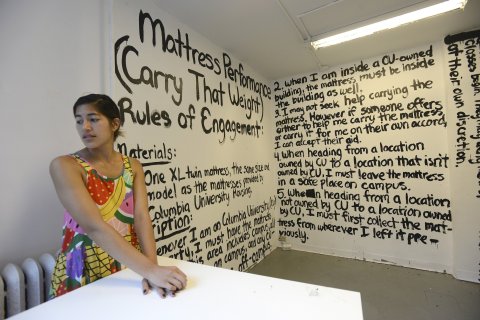 Mattress Performance
(Carry That Weight)
Rules of Engagement:
Materials:
One XL-twin mattress, the same size and
model as the mattresses provided by
Columbia University Housing.
Whenever I am on Columbia University
property, I must have the mattress
area includes campus,
2. When I am inside a CU-owned
building, the mattress must be inside
the building as well.
3. I may not seek help carrying the
mattress. However if someone offers
either to help me carry the mattress
or carry it for me on their own accord,
I can accept their aid.
4. When heading from a location
owned by CU to a location that isn't
owned by CU, I must leave the mattress
in a safe place on campus.
5. When heading from a location
not owned by CU to a location owned
by CU, I must first collect the mat-
tress from wherever I left it pre-
viously.
at their own
discretion.